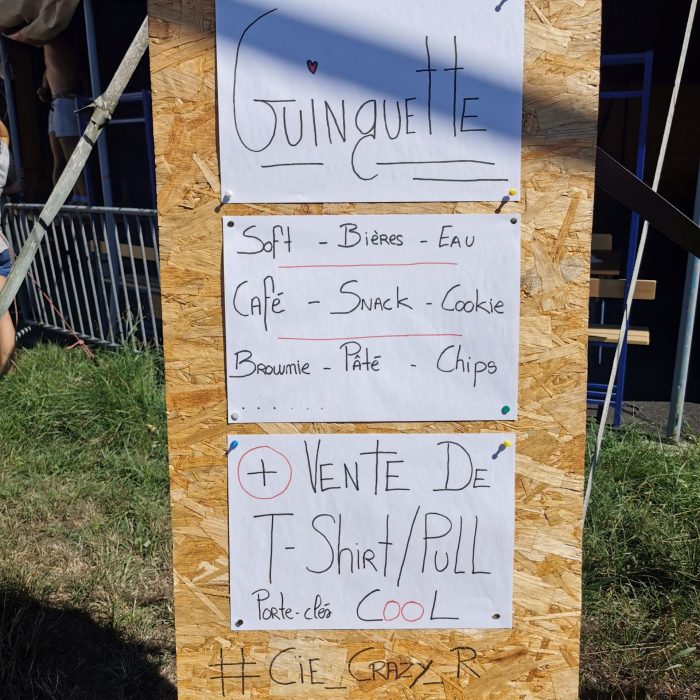 Guinguette
Soft - Bières - Eau
Café - Snack - Cookie
Brownie - Pâté - Chips
.......
+ Vente De
T-Shirt/Pull
Porte-clés Cool
#Cie_Crazy_R